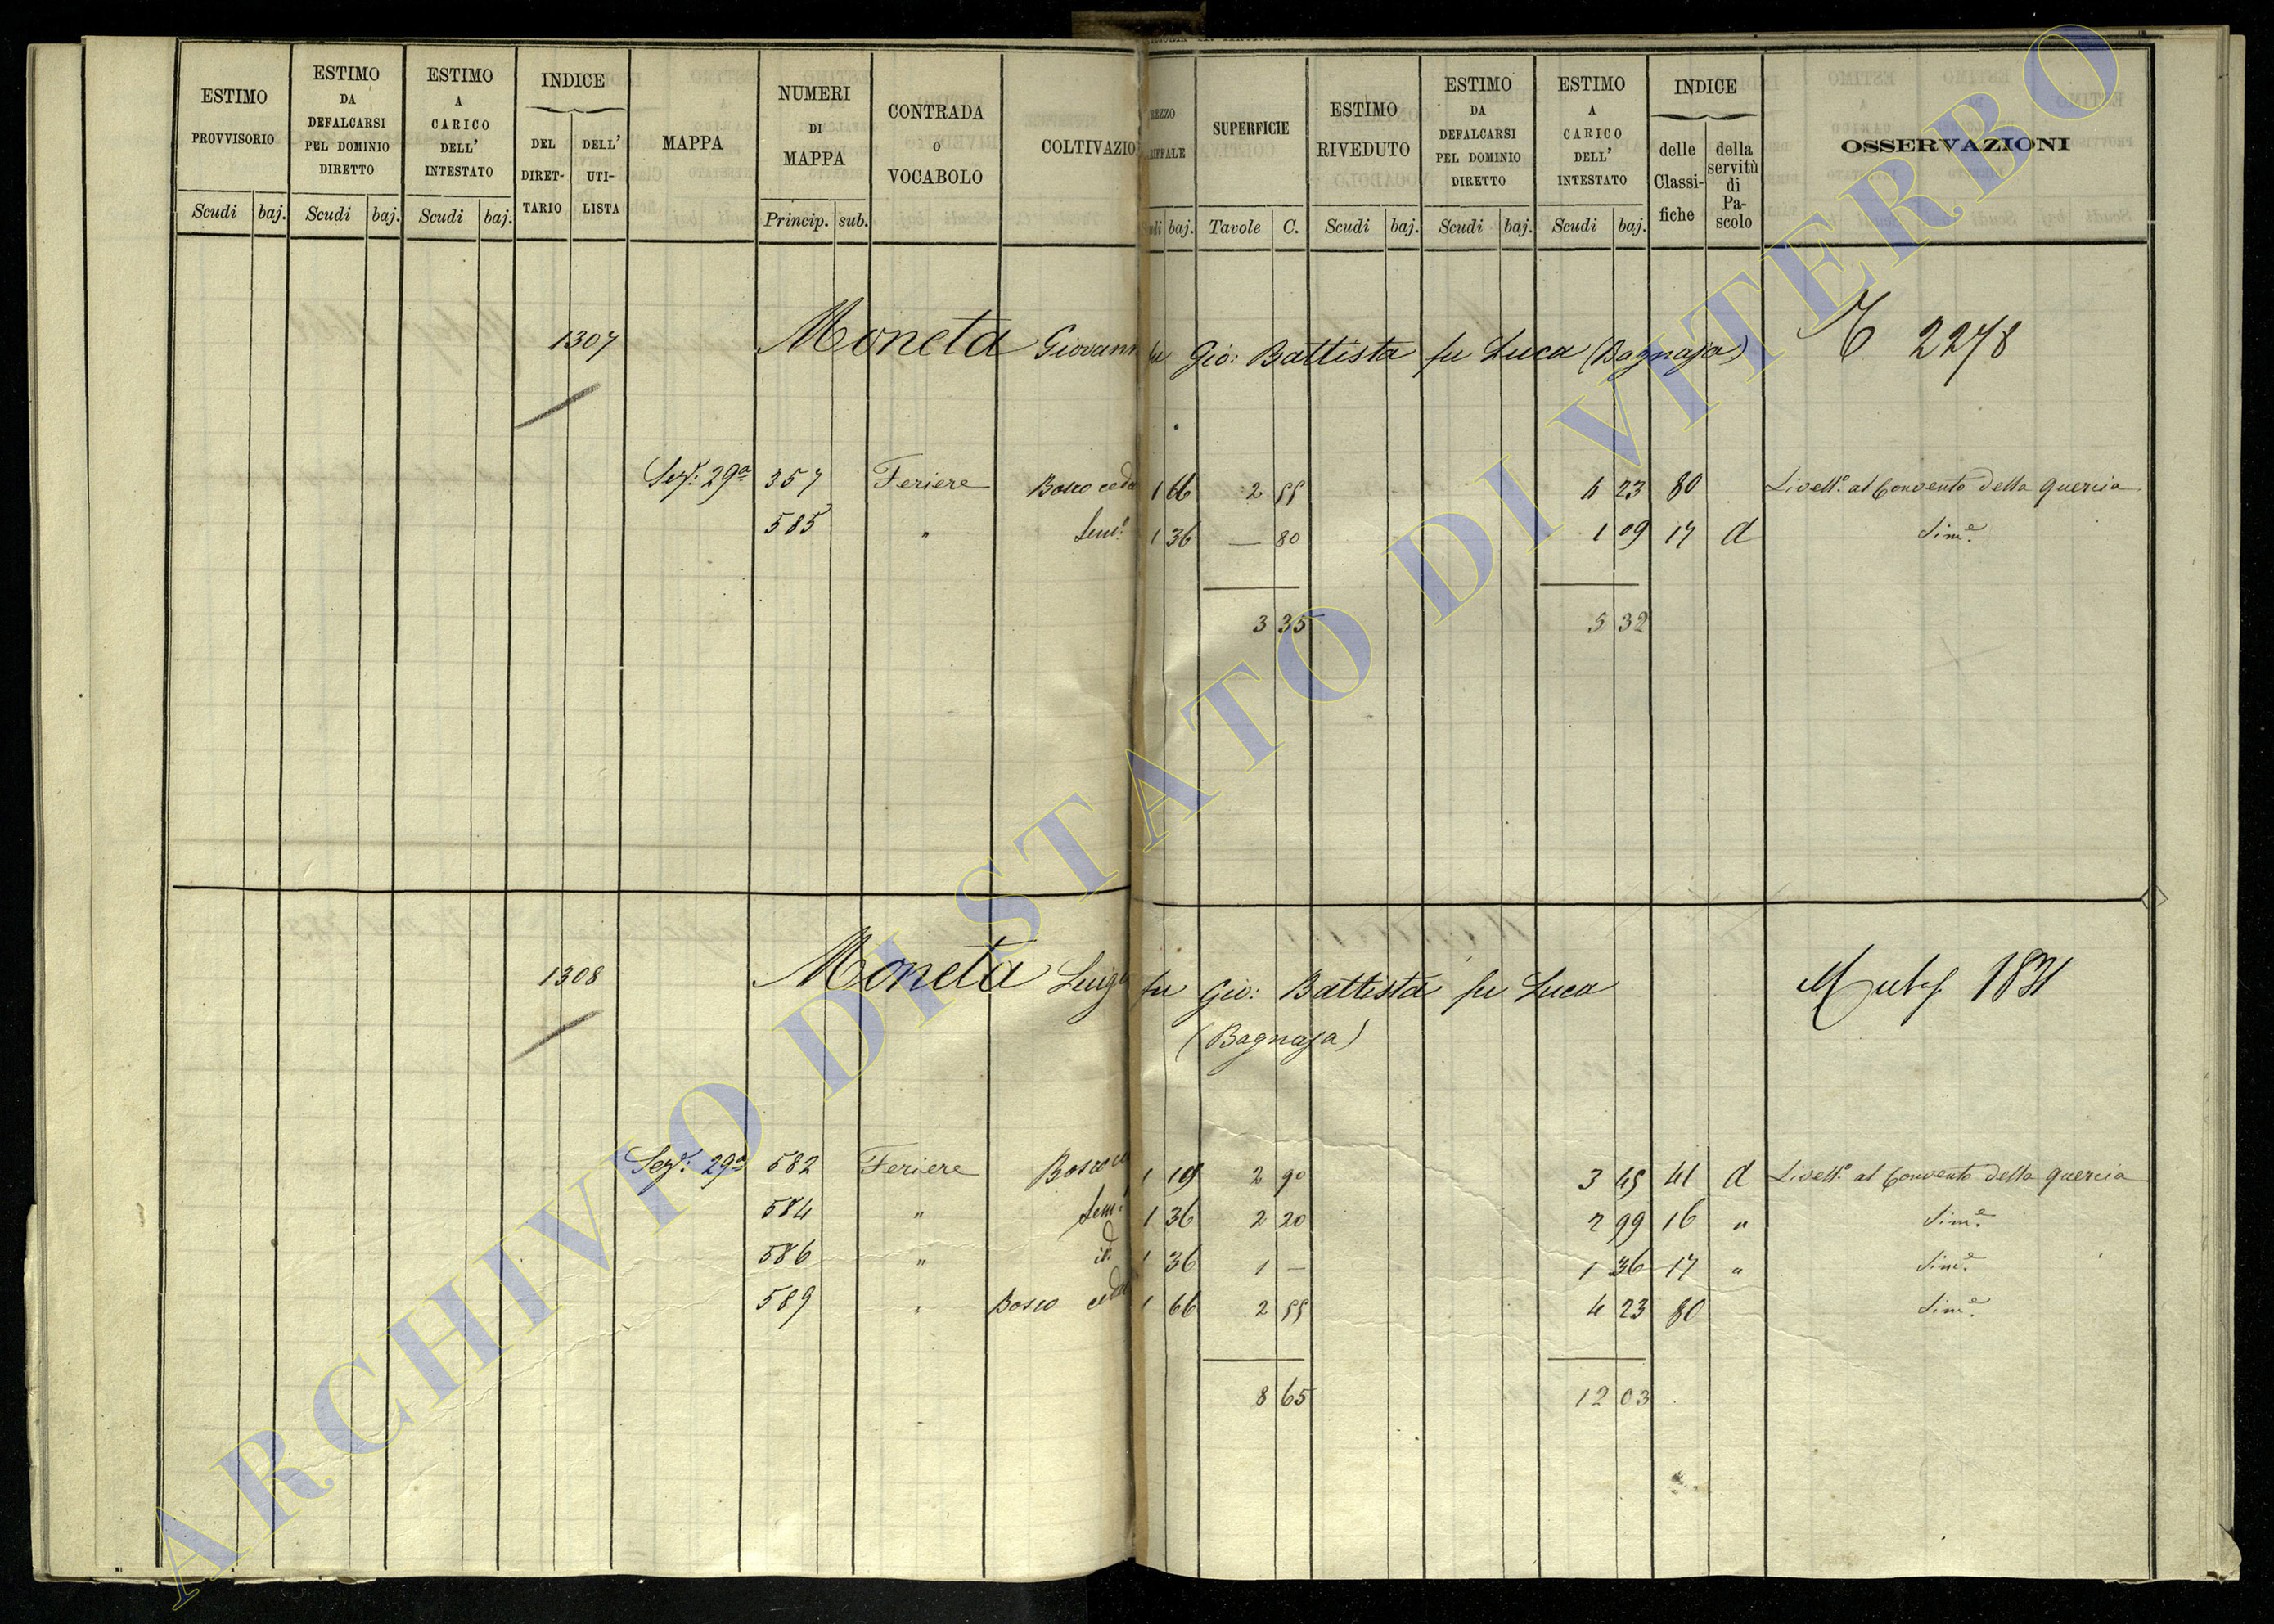 ESTIMO PROVVISORIO Scudi baj.
ESTIMO DA DEFALCARSI PEL DOMINIO DIRETTO Scudi baj.
ESTIMO A CARICO DELL' INTESTATO Scudi baj.
INDICE DEL DIRET- TARIO DELL' UTI- LISTA
MAPPA
NUMERI DI MAPPA Princip. sub.
CONTRADA O VOCABOLO
COLTIVAZIO
baj.
SUPERFICIE Tavole C.
ESTIMO RIVEDUTO Scudi baj.
ESTIMO DA DEFALCARSI PEL DOMINIO DIRETTO Scudi baj.
ESTIMO A CARICO DELL' INTESTATO Scudi baj.
INDICE delle Classi- fiche della servitù di Pa- scolo
OSSERVAZIONI
1307 Moneta Giovann fu Gio: Battista fu Luca (Bagnaja) 2278
Sez.: 29a 357 Feriere Bosco ced 1 66 2 55 4 23 80 Livell.o al Convento della Quercia
585 " Sem.o 1 36 — 80 1 09 17 d Sim.e
3 35 5 32
1308 Moneta Luigi fu Gio: Battista fu Luca
(Bagnaja)
1831
Sez.: 29a 582 Feriere Bosco 1 19 2 90 3 45 41 d Livell.o al Convento della Quercia
584 " Sem.o 1 36 2 20 2 99 16 " Sim.e
586 " id. 1 36 1 — 1 36 17 " Sim.e
589 " Bosco ced 1 66 2 55 4 23 80 Sim.e
8 65 12 03
ARCHIVIO DI STATO DI VITERBO